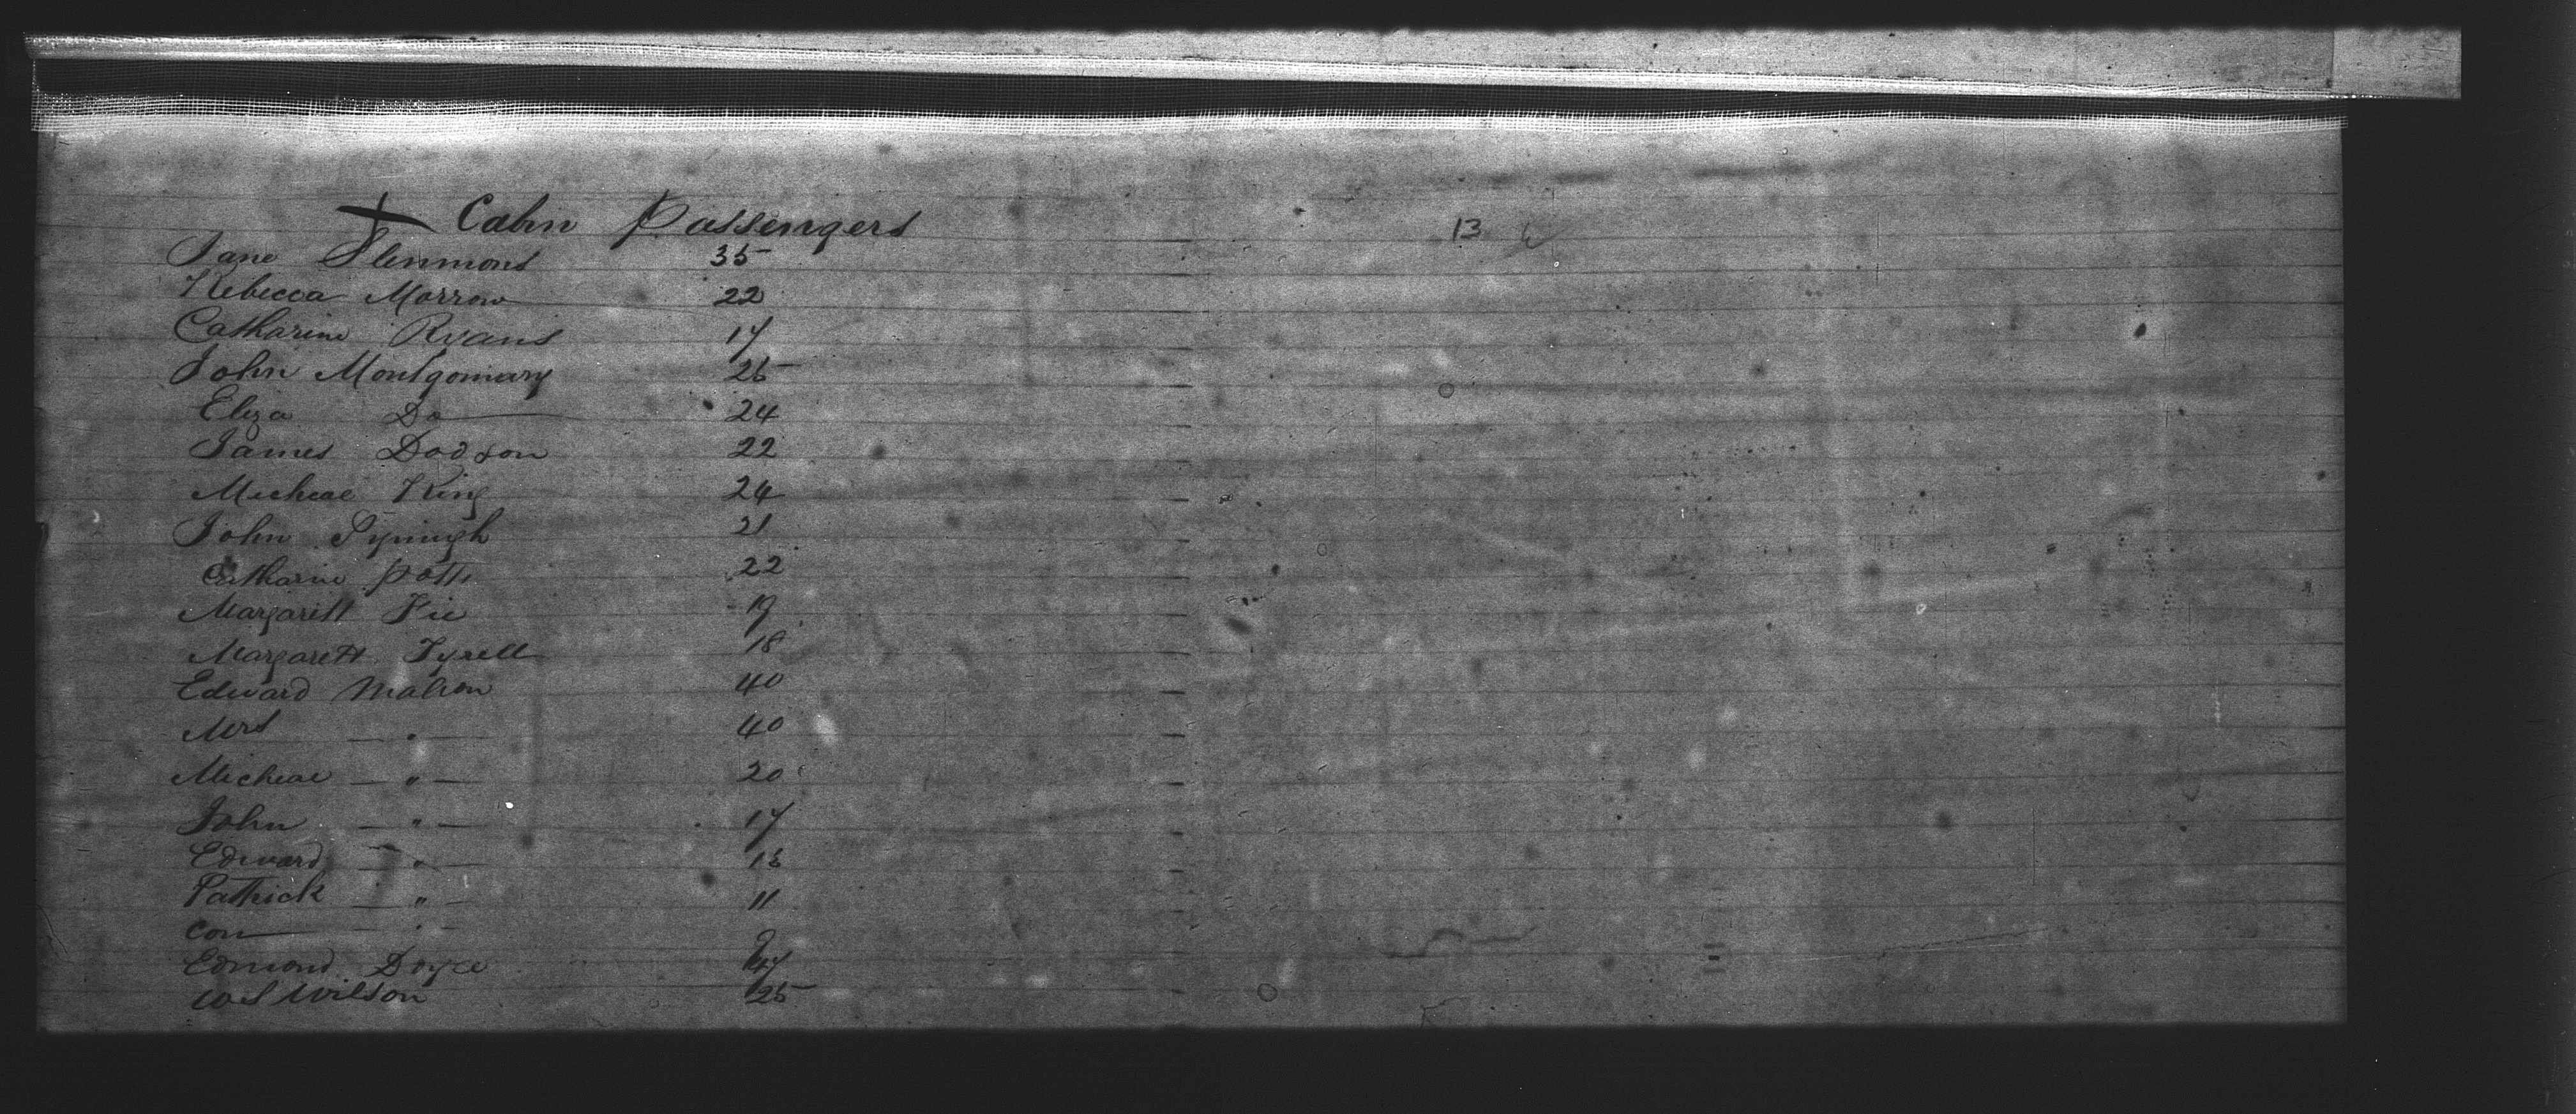 Cabin Passengers 13
Jane Slemmons 35
Rebecca Morrow 22
Catharine Ryans 17
John Montgomary 25
Eliza Do 24
James Dodson 22
Micheal King 24
John 21
Catharine Potts 22
Margarett 19
Margarett Tyrell 18
Edward Mahon 40
Mrs — " — 40
Micheal — " — 20
John — " — 17
Edward — " — 13
Patrick — " — 11
Con — " — 9
Edmond Doyle 47
W S Wilson 25